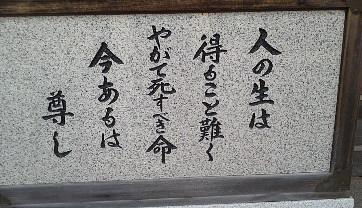 人の生は
得ること難く
やがて死すべき命
今あるは
尊し